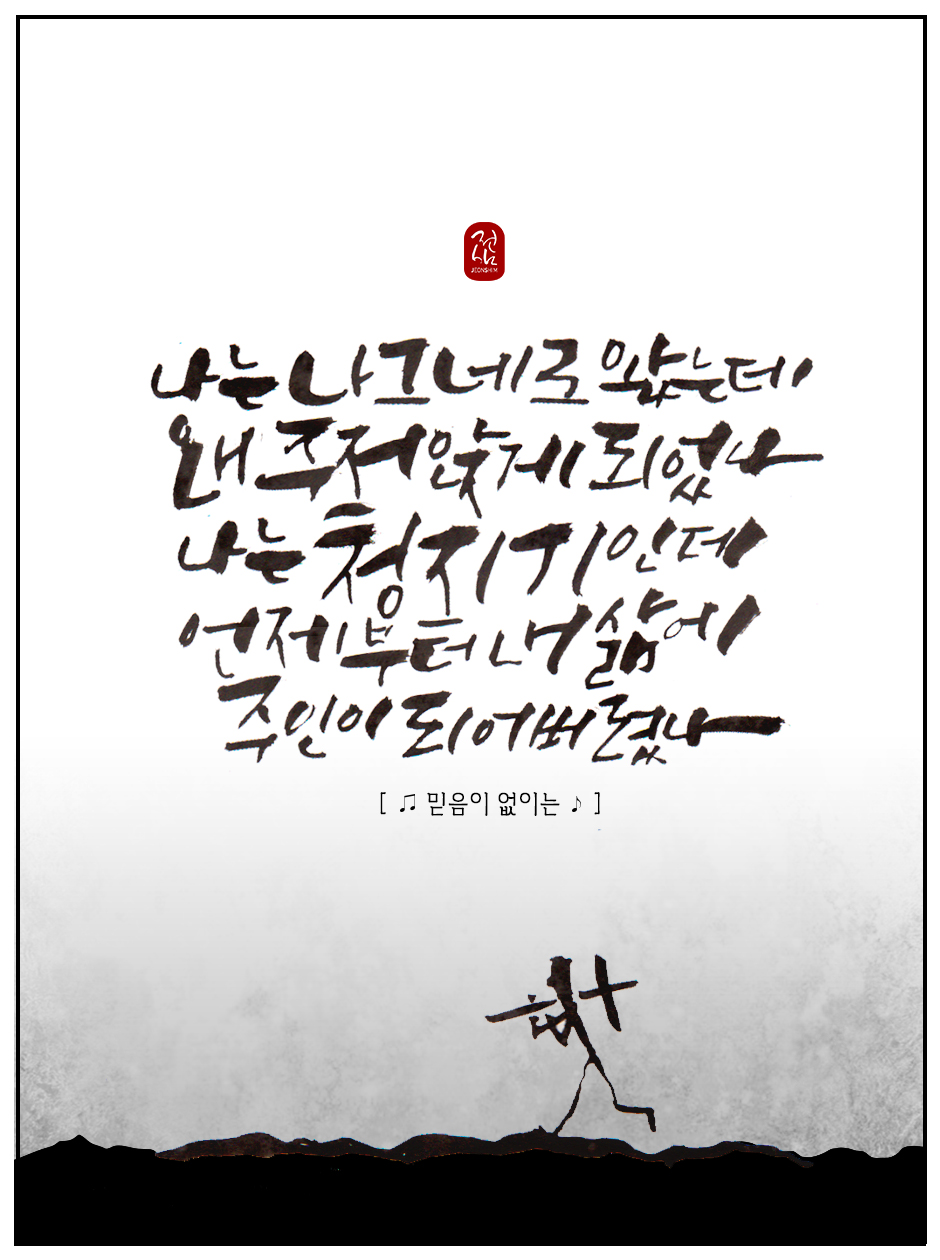 전심
JEONSHIM
나는 나그네로 왔는데
왜 주저앉게 되었나
나는 청지기인데
언제부터 내 삶에
주인이 되어버렸나
[ ♫ 믿음이 없이는 ♪ ]